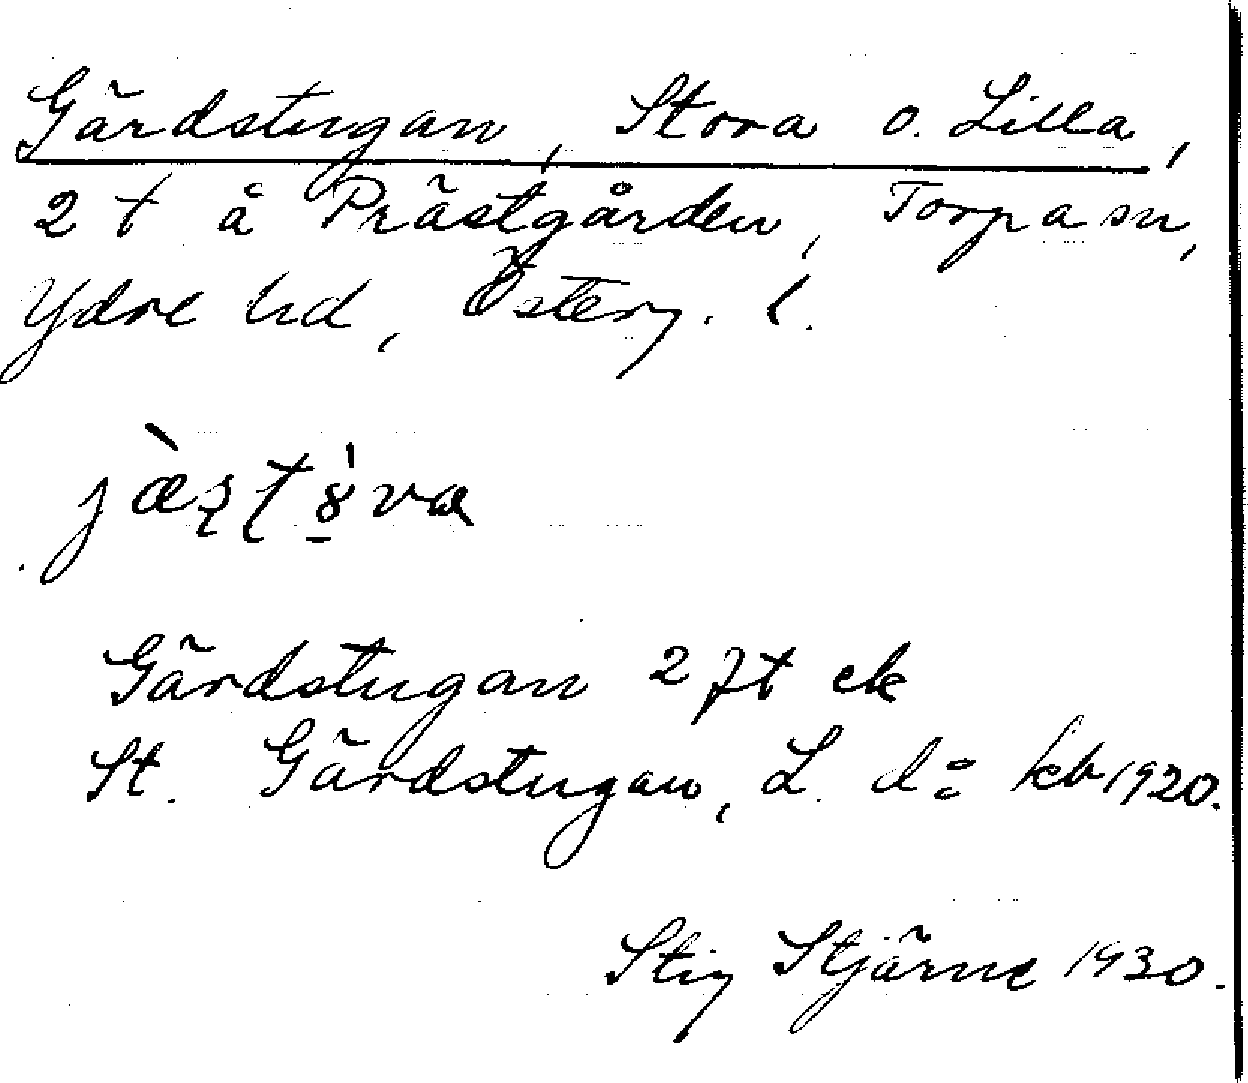 Gärdstugan, Stora o. Lilla,
2 t å Prästgården, Torpa sn,
Ydre hd, Österg. l.
Gärdstugan 2 ft ek
St. Gärdstugan, L. d:o kb 1920.
Stig Stjärne 1930.